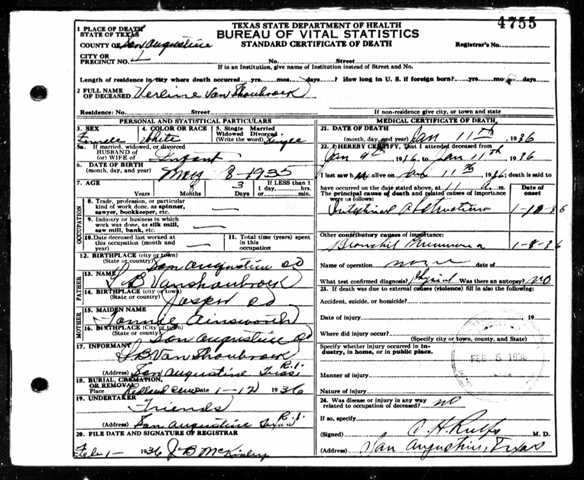 TEXAS STATE DEPARTMENT OF HEALTH
BUREAU OF VITAL STATISTICS
STANDARD CERTIFICATE OF DEATH
4755
1 PLACE OF DEATH
STATE OF TEXAS
COUNTY OF San Augustine
CITY OR
PRECINCT NO. 1
Registrar's No.
No. Street
If in an Institution, give name of institution instead of Street and No.
Length of residence in city where death occurred yrs. mos. days? How long in U. S. if foreign born? yrs. mos. days
2 FULL NAME
OF DECEASED Verline Van Shoubrock
Residence: No. Street
If non-residence give city, or town and state
PERSONAL AND STATISTICAL PARTICULARS
3. SEX
Female
4. COLOR OR RACE
White
5. Single Married
Widowed Divorced
(Write the word) Single
5a. If married, widowed or divorced
HUSBAND OF
(or) WIFE OF Infant
6. DATE OF BIRTH
(month, day, and year) May 8-1935
7. AGE Years Months Days
8 3
If LESS than 1
1 day, hrs.
or min.
OCCUPATION
8. Trade, profession, or particular
kind of work done, as spinner,
sawyer, bookkeeper, etc.
9. Industry or business in which
work was done, as silk mill,
saw mill, bank, etc.
10. Date deceased last worked at
this occupation (month and
year)
11. Total time (years)
spent in this
occupation
12. BIRTHPLACE (city or town)
(State or country) San Augustine Co
FATHER
13. NAME J B Vanshoubrock
14. BIRTHPLACE (City or town)
(State or country) Jasper Co
MOTHER
15. MAIDEN NAME Ainsworth
16. BIRTHPLACE (City or town)
(State or country) San Augustine Co
17. INFORMANT J B Van Shoubrock
(Address) San Augustine Texas R.1.
18. BURIAL, CREMATION,
OR REMOVAL
Place Date 1-12 1936
19. UNDERTAKER Friends
(Address) San Augustine Texas R.1.
20. FILE DATE AND SIGNATURE OF REGISTRAR
Feb 1- 1936 J B McKinley
MEDICAL CERTIFICATE OF DEATH
21. DATE OF DEATH
(month, day, and year) Jan 11th 1936
22. I HEREBY CERTIFY, That I attended deceased from
Jan 9th 1936 to Jan 11th 1936
I last saw h alive on Jan 11th 1936 death is said to
have occurred on the date stated above, at m.
The principal cause of death and related causes of importance
were as follows:
Date of
onset
Intestinal Obstruction 1-10-36
Other contributory causes of importance:
Bronchial Pneumonia 1-8-36
Name of operation none
What test confirmed diagnosis? Physical Was there an autopsy? no
23. If death was due to external causes (violence) fill in also the following:
Accident, suicide, or homicide?
Date of injury , 19
Where did injury occur?
(Specify city or town, county, and State)
Specify whether injury occurred in industry, in home, or in public place.
FEB 5 1936
Manner of injury
Nature of injury
24. Was disease or injury in any way
related to occupation of deceased? no
If so, specify
(Signed) M. D.
(Address) San Augustine, Texas